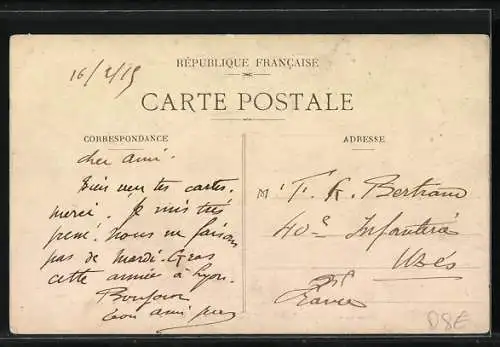 RÉPUBLIQUE FRANÇAISE
16/2/15
CARTE POSTALE
CORRESPONDANCE
ADRESSE
cher ami.
Bien reçu tes cartes.
merci. Je suis très
peiné. Nous ne faisons
pas de Mardi-Gras
cette année à Lyon.
Bonjour
ton ami
Mr Bertrand
40e Infanterie
Uzès
France
D8E